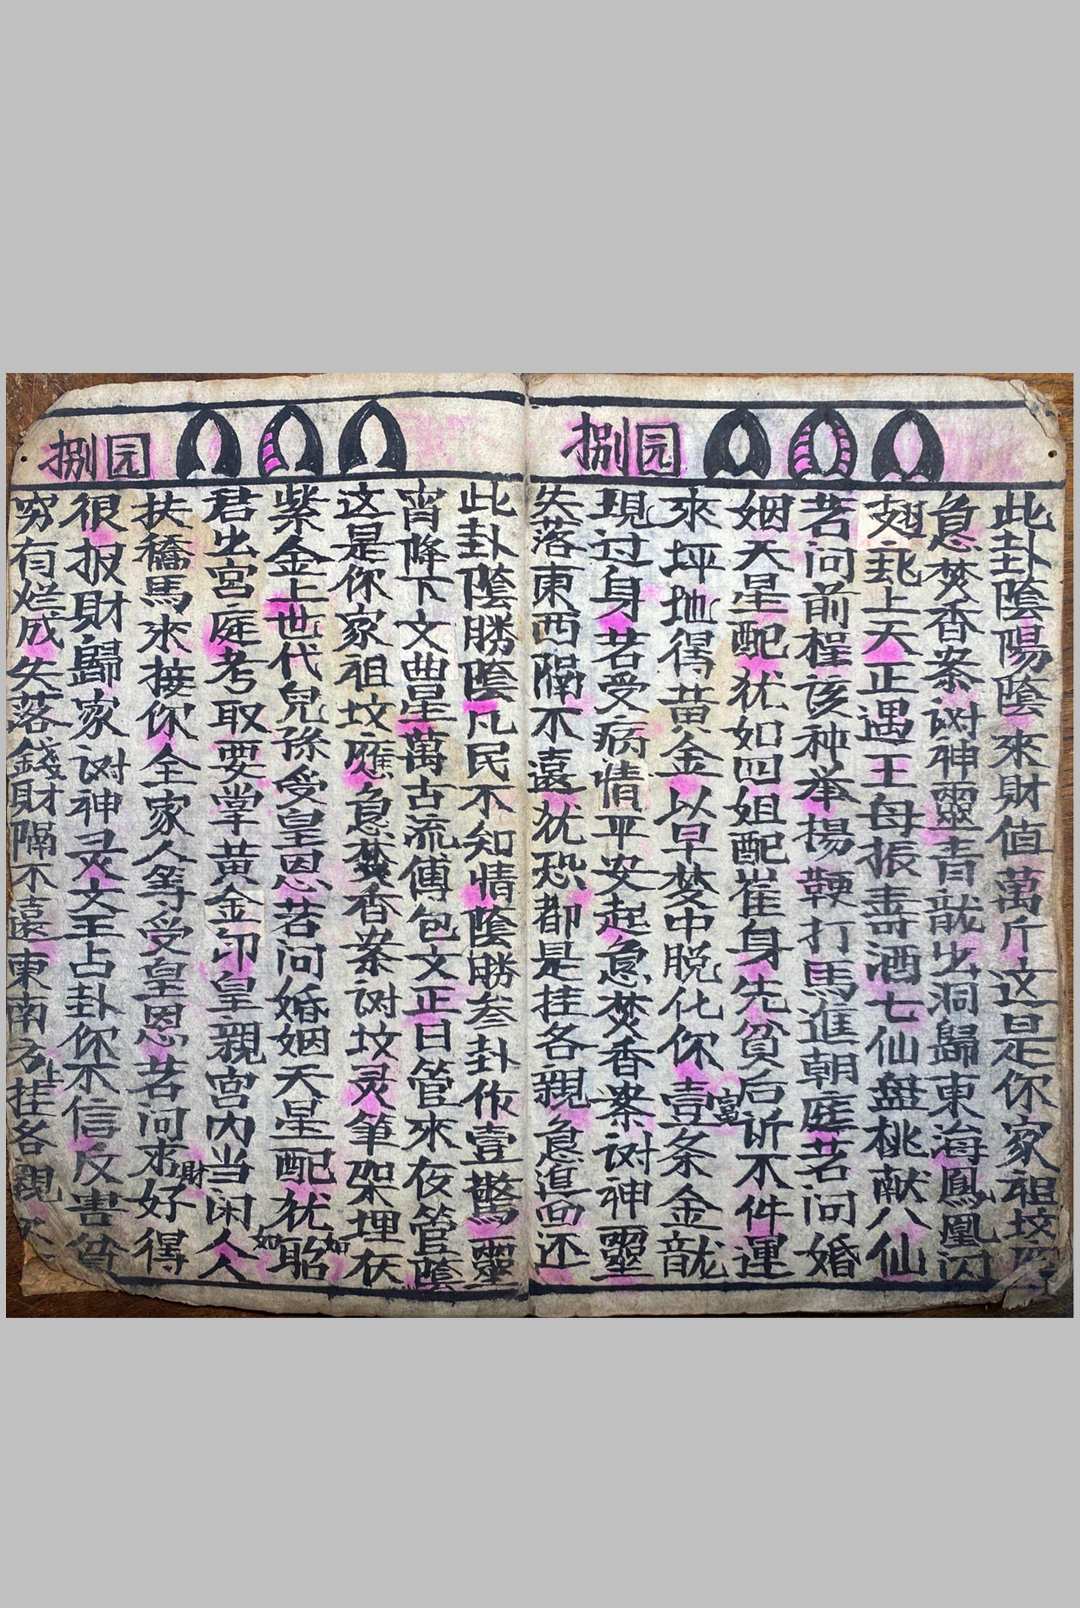 捌园
此卦陰陽陰來財值萬斤这是你家祖坟
急焚香案谢神靈青龍出洞歸東海鳳凰闪
翅飛上天正遇王母振壽酒七仙盘桃献八仙
若问前程该种举揚鞭打馬進朝庭若问婚
姻天星配犹如四姐配崔身先貧后 富不件運
來坪地得黄金以早梦中脱化你壹条金龍
現过身若受病情平安起急焚香案谢神靈
失落東西隔不遠犹恐都是挂各親急追回还
捌园
此卦陰勝陰凡民不知情陰勝叁卦作壹驚靈
宵降下文曲星萬古流傳包文正日管來夜管陰
这是你家祖坟應急焚香案谢坟灵筆架埋在
紫金上世代兒孫受皇恩若问婚姻天星配犹如
君出宮庭考取要掌黄金印皇親宮内当闲人
扶轎馬來接你全家人等受皇恩若问求財好得
很报財歸家谢神灵文王占卦你不信反害
穷有烂成失落錢財隔不遠東南 挂各親